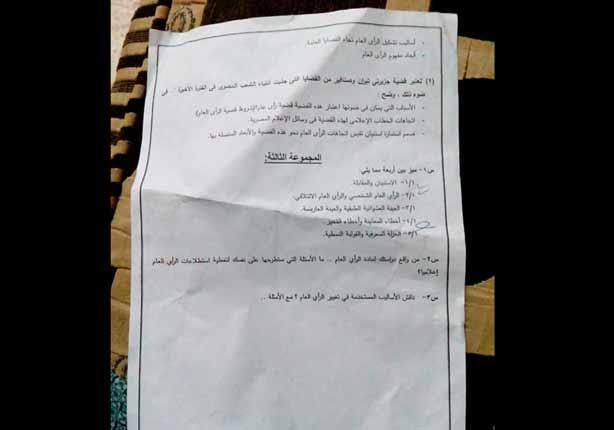 - أساليب تشكيل الرأي العام تجاه القضايا العامة.
- أبعاد مفهوم الرأي العام
(٢) تعتبر قضية جزيرتي تيران وصنافير من القضايا التى جذبت انتباه الشعب المصرى فى الفترة الأخيرة .. فى
ضوء ذلك ، وضح :
- الأسباب التي يمكن فى ضوئها اعتبار هذه القضية قضية رأى عام(شروط قضية الرأى العام)
- اتجاهات الخطاب الإعلامى لهذه القضية فى وسائل الإعلام المصرية.
- صمم استمارة استبيان تقيس اتجاهات الرأى العام نحو هذه القضية والأبعاد المتصلة بها.
المجموعة الثالثة:
س١- ميز بين أربعة مما يلي:
١/١- الاستبيان والمقابلة.
٢/١- الرأي العام الشخصي والرأي العام الائتلافي.
٣/١- العينة العشوائية الطبقية والعينة العارضة.
٤/١- أخطاء المعاينة وأخطاء التحيز.
٥/١- العزلة المعرفية والقولبة النمطية.
س٢- من واقع دراستك لمادة الرأي العام .. ما الأسئلة التي ستطرحها على نفسك لتغطية استطلاعات الرأي العام
إعلاميا؟
س٣- ناقش الأساليب المستخدمة في تغيير الرأي العام ؟ مع الأمثلة ..